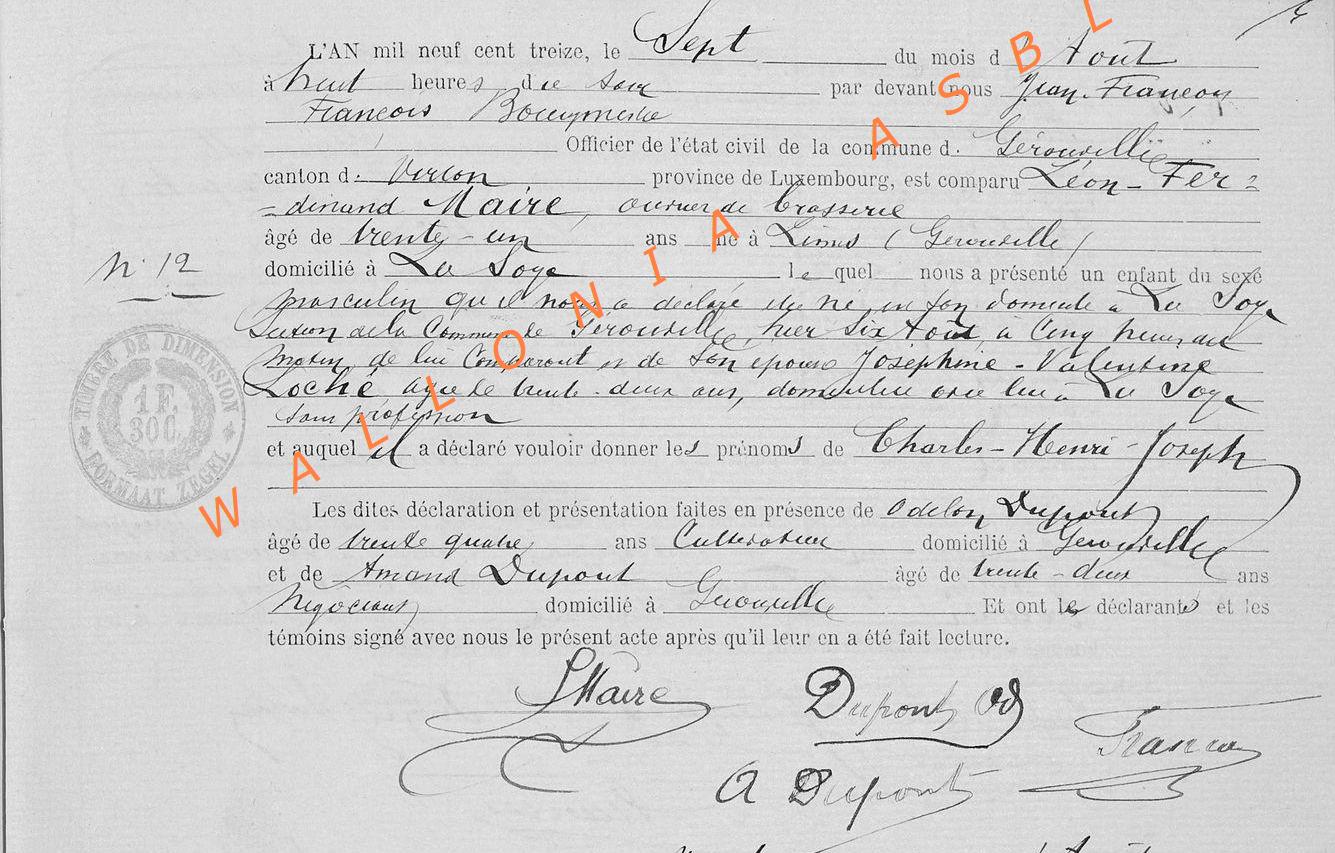 L'AN mil neuf cent treize, le Sept du mois d Août
à huit heures du soir par devant nous Jean François
François
Officier de l'état civil de la commune d. Gérouville
canton d. Virton province de Luxembourg, est comparu Léon - Fer=
=dinand Maire, ouvrier de brasserie
âgé de trente-un ans né à Limes (Gérouville)
N° 12
domicilié à La Soye lequel nous a présenté un enfant du sexe
masculin qu'il nous a déclaré être né en son domicile à La Soye
Section de la Commune de Gérouville, hier Six Août, à Cinq heures du
matin, de lui Comparant et de son épouse Joséphine - Valentine
Loché âgée de trente-deux ans, domiciliée avec lui à La Soye
sans profession
et auquel il a déclaré vouloir donner les prénoms de Charles - Henri - Joseph
Les dites déclaration et présentation faites en présence de Odelon Dupont
âgé de trente quatre ans Cultivateur domicilié à Gérouville
et de Amand Dupont âgé de trente-deux ans
Négociant domicilié à Gérouville Et ont les déclarants et les
témoins signé avec nous le présent acte après qu'il leur en a été fait lecture.
TIMBRE DE DIMENSION
1 F.
30 C.
FORMAAT ZEGEL
LMaire
Dupont Od
A Dupont
WALLONIA ASBL